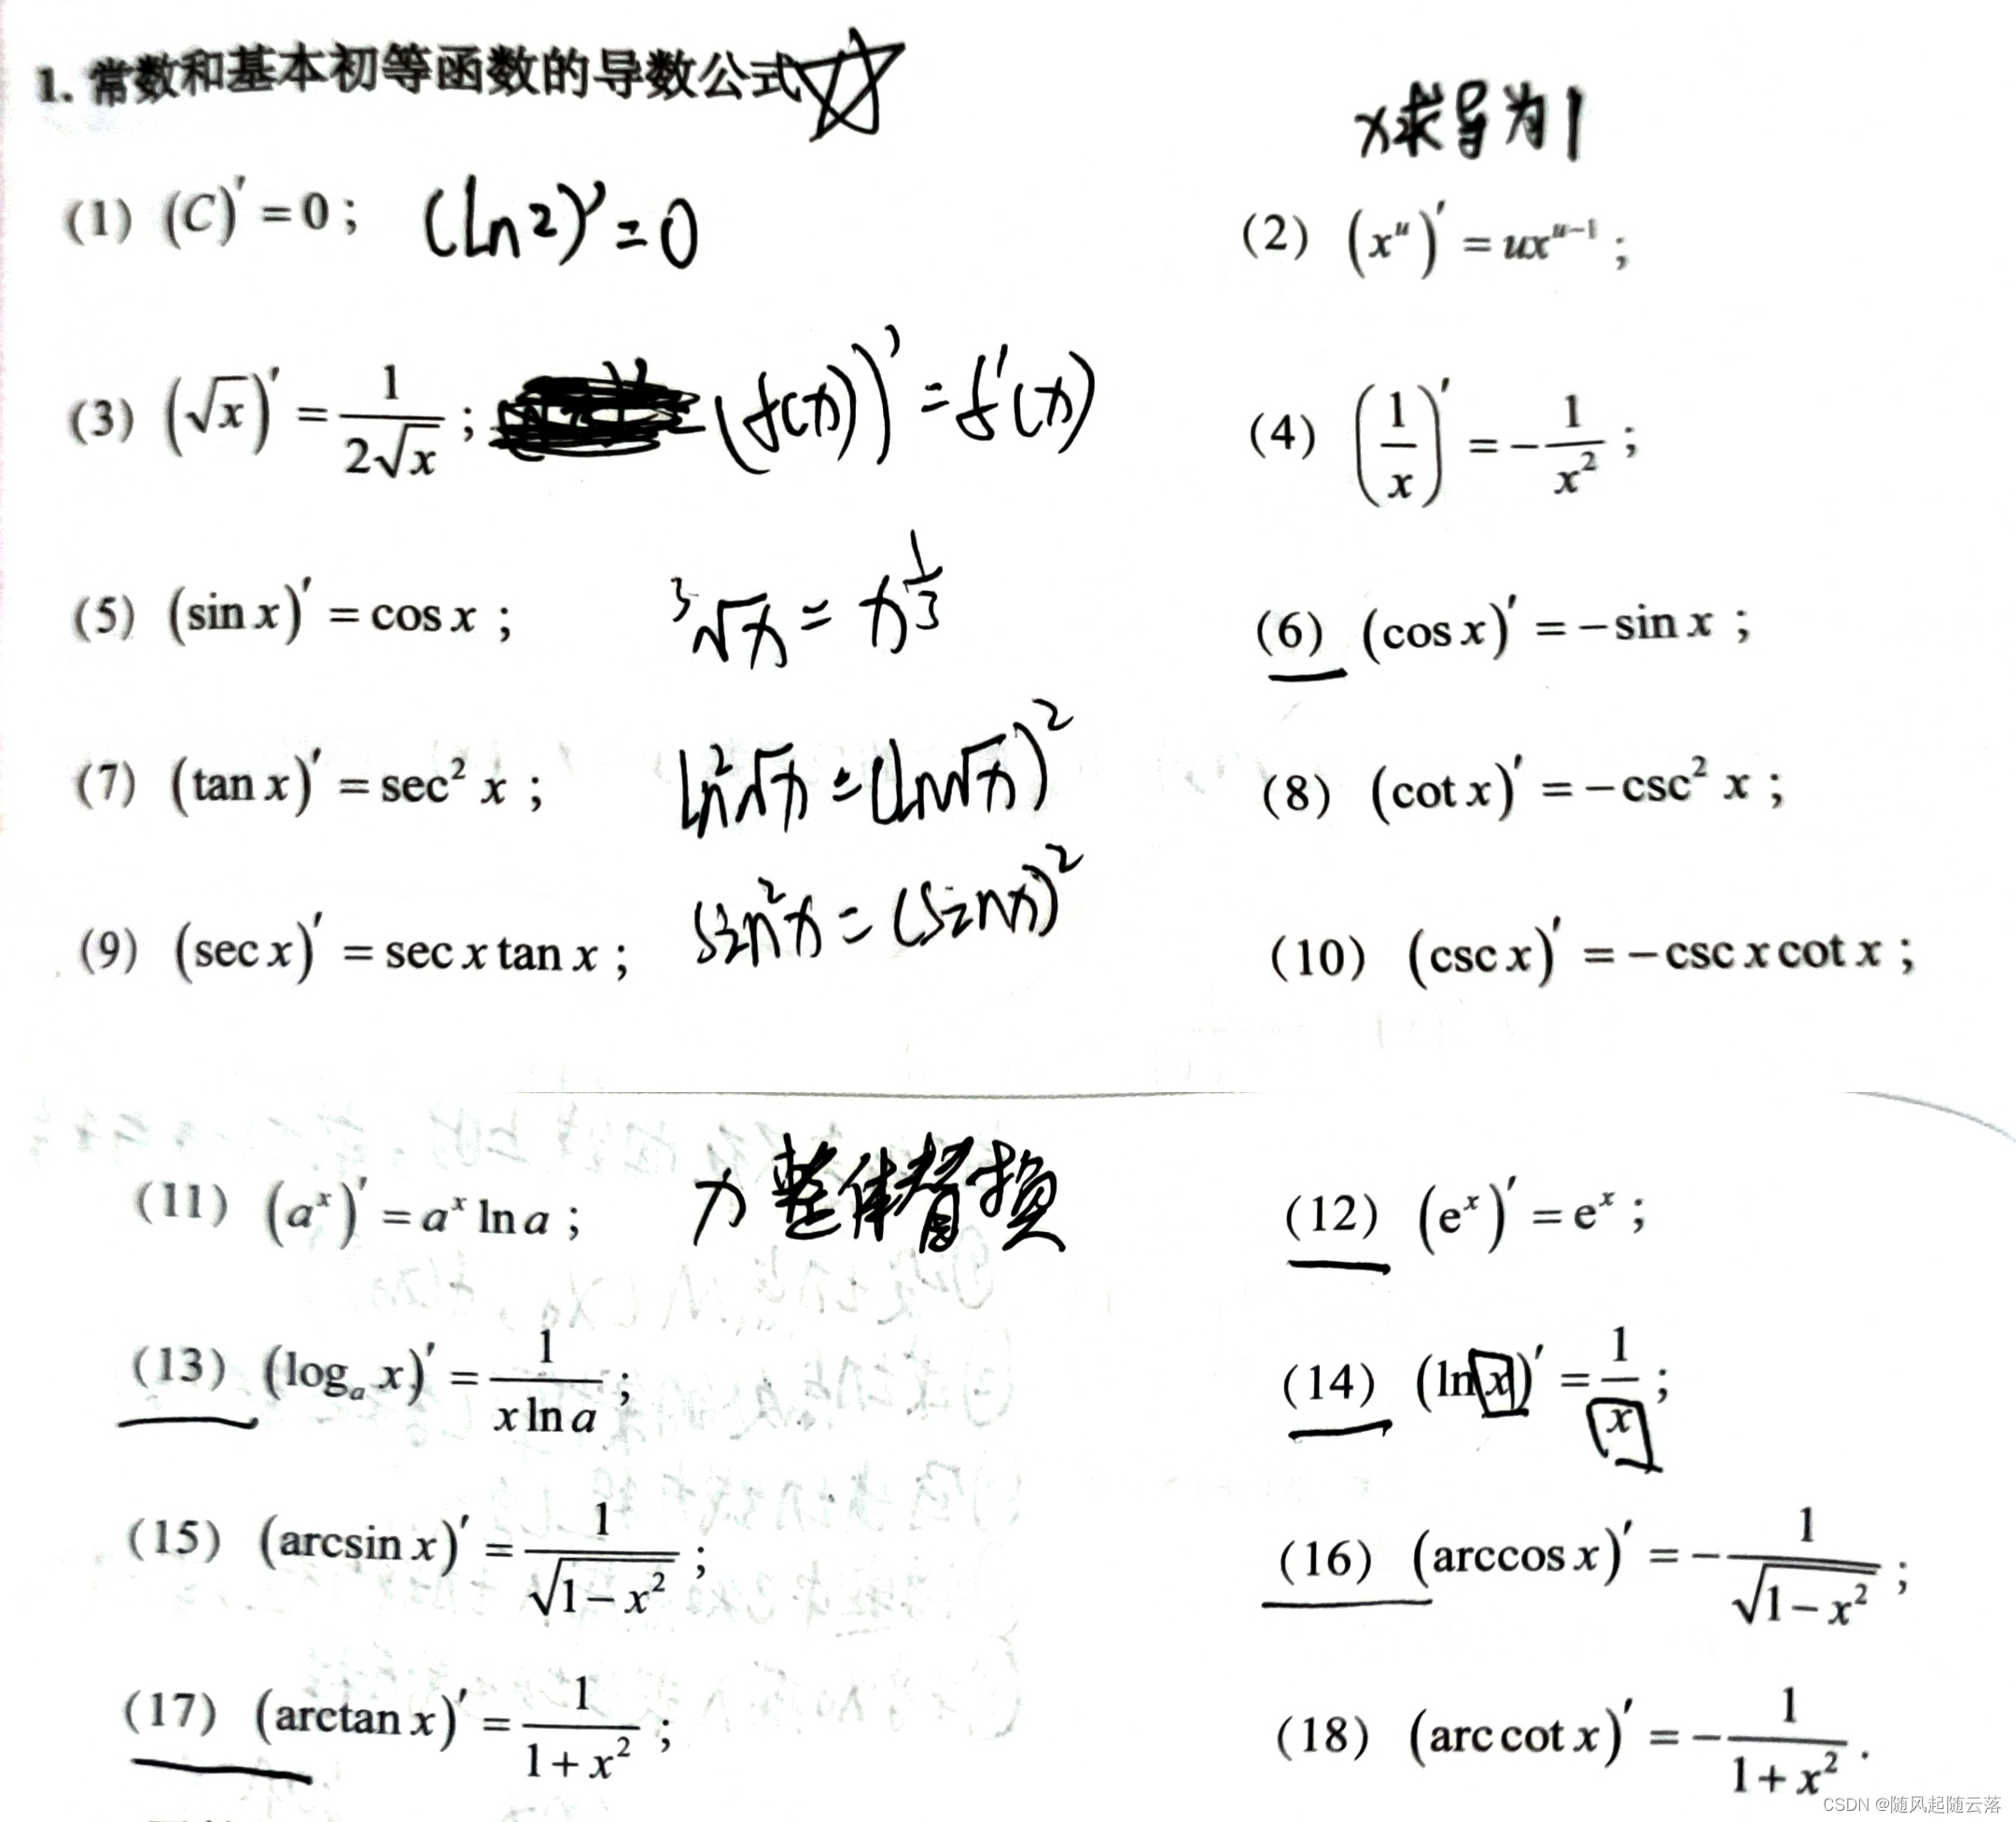 1. 常数和基本初等函数的导数公式
x求导为1
(1) (C)′=0; (ln2)′=0
(2) (xᵘ)′=uxᵘ⁻¹;
(3) (√x)′=1/(2√x); (f(x))′=f′(x)
(4) (1/x)′=-1/x²;
(5) (sin x)′=cos x; ³√x=x^(1/3)
(6) (cos x)′=-sin x;
(7) (tan x)′=sec² x; ln²√x=(ln√x)²
(8) (cot x)′=-csc² x;
(9) (sec x)′=sec x tan x; sin²x=(sinx)²
(10) (csc x)′=-csc x cot x;
(11) (aˣ)′=aˣ ln a; x 整体替换
(12) (eˣ)′=eˣ;
(13) (logₐ x)′=1/(x ln a);
(14) (ln x)′=1/x;
(15) (arcsin x)′=1/√(1-x²);
(16) (arccos x)′=-1/√(1-x²);
(17) (arctan x)′=1/(1+x²);
(18) (arc cot x)′=-1/(1+x²).
CSDN @随风起随云落